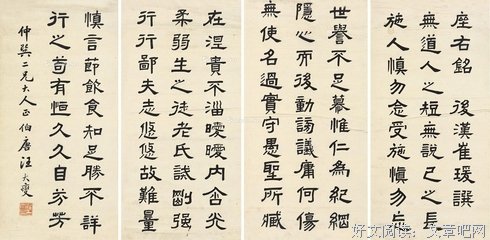 座右銘 後漢崔瑗譔
無道人之短無說己之長
施人慎勿念受施慎勿忘
世譽不足慕惟仁為紀綱
隱心而後動謗議庸何傷
無使名過實守愚聖所臧
在涅貴不淄曖曖內含光
柔弱生之徒老氏誡剛强
行行鄙夫志悠悠故難量
慎言節飲食知足勝不詳
行之苟有恒久久自芬芳
仲巽二兄大人正 伯唐汪大燮
好文阅读：文章吧网